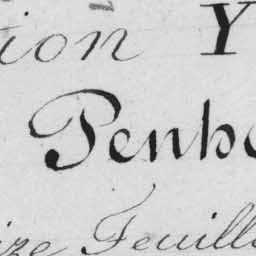 tion Y
Penh
ize Feuill